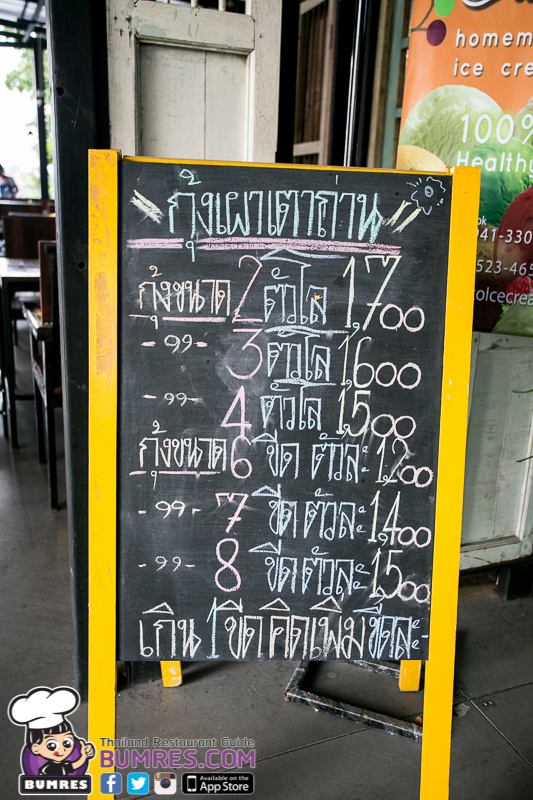 กุ้งเผาเตาถ่าน
กุ้งขนาด 2 ตัวโล 1,700
- ๑๑ - 3 ตัวโล 1,600
- ๑๑ - 4 ตัวโล 1,500
กุ้งขนาด 6 ขีด ตัวละ 1,200
- ๑๑ - 7 ขีด ตัวละ 1,400
- ๑๑ - 8 ขีด ตัวละ 1,500
เกิน 1 ขีด คิดเพิ่มขีดละ -
homem
ice cre
100%
Healthy
041-330
523-465
olcecrea
Thailand Restaurant Guide
BUMRES.COM
BUMRES
Available on the
App Store